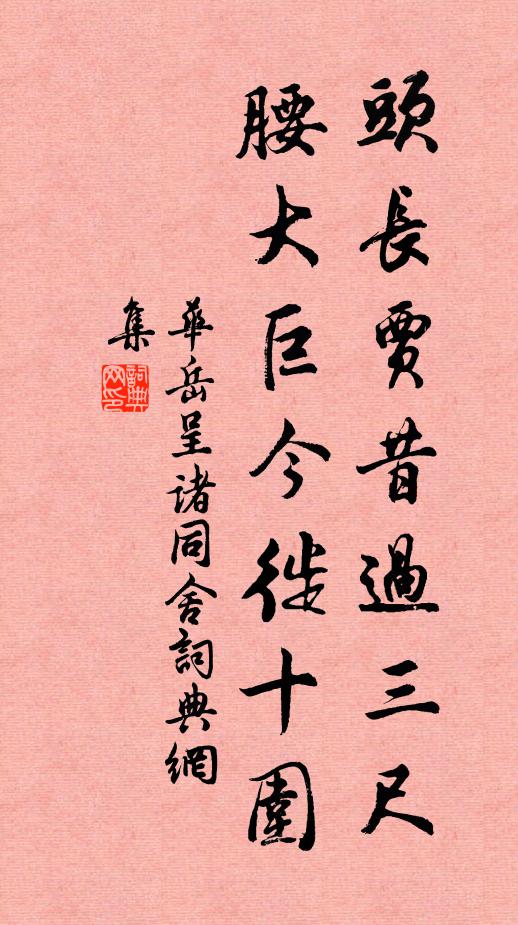 頭長賈昔過三尺
腰大巨今徙十圍
華岳呈諸同舍詞典網
集
詞典
网印